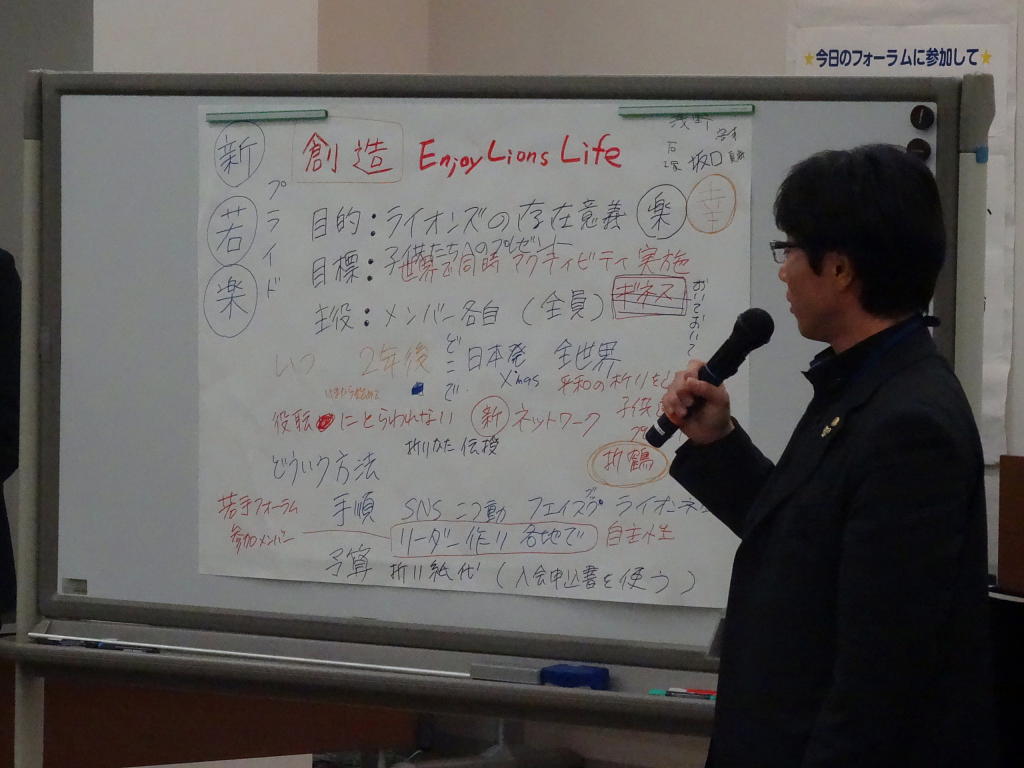 ★今日のフォーラムに参加して★
新 創造 Enjoy Lions Life
坂口
若 楽
プライド
目的：ライオンズの存在意義 楽 幸
目標：子供たちへのプレゼント
世界で同時アクティビティ実施
主役：メンバー各自（全員） ギネス
おいておいて
いつ 2年後 どこで 日本発 全世界
X'mas 平和の祈りを
役職にとらわれない 新 ネットワーク 子供
折りかた伝授
どういう方法 折鶴
若手フォーラム 手順 SNS ニコ動 フェイスブック ライオンネ
参加メンバー リーダー作り 各地で 自主性
予算 折り紙代（入会申込書を使う）